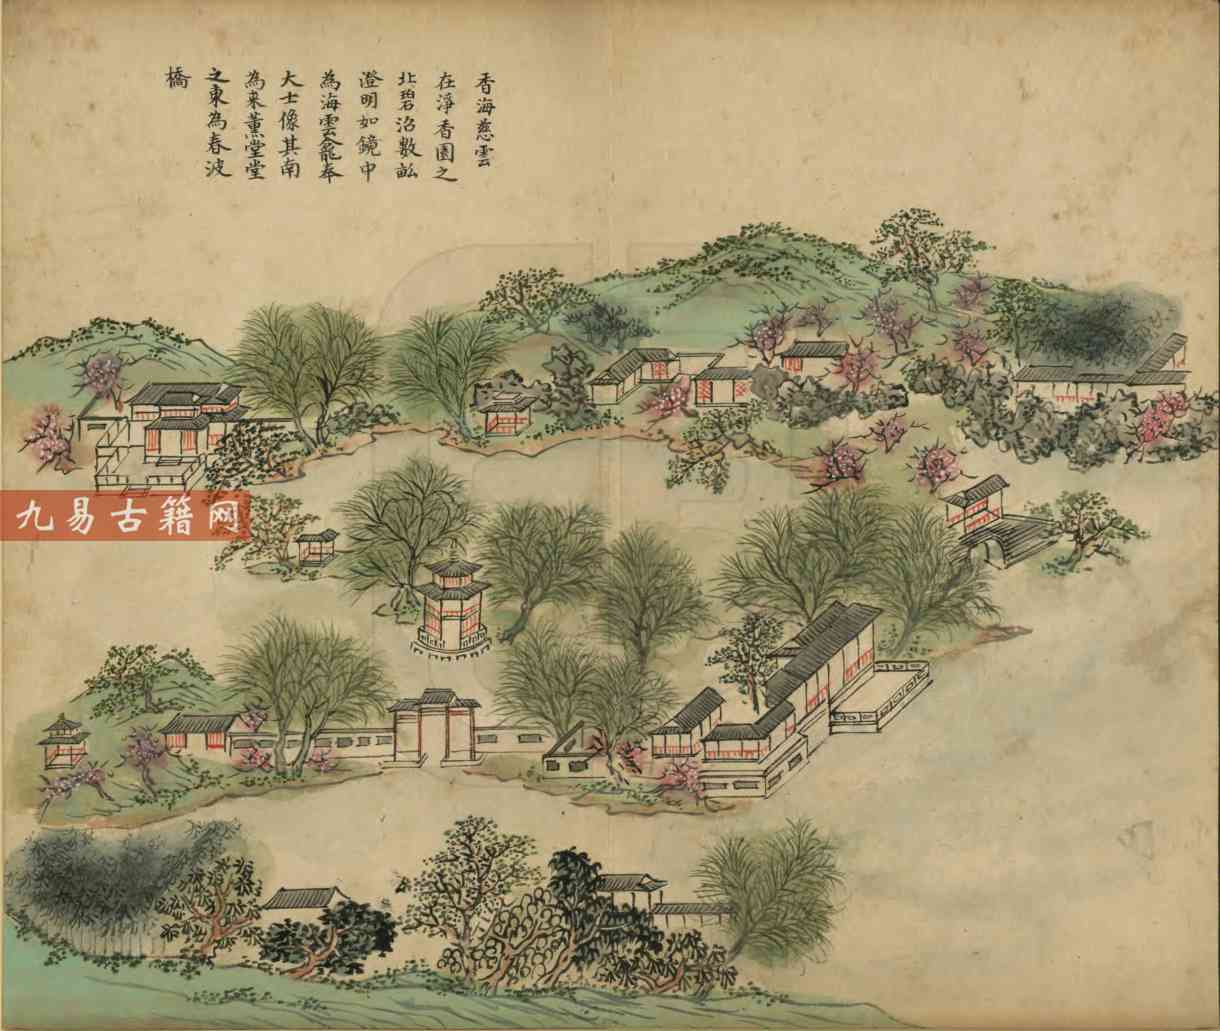 香海慈雲
在淨香園之
北碧沼數畝
澄明如鏡中
為海雲龕奉
大士像其南
為来薰堂堂
之東為春波
橋
九易古籍网